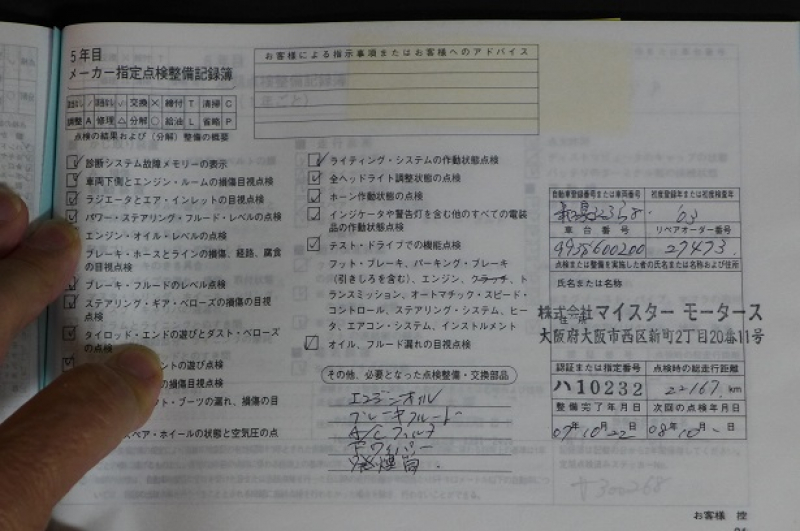 5年目
メーカー指定点検整備記録簿
交換 × 締付 T 清掃 C
調整 A 修理 △ 分解 ○ 給油 L 省略 P
点検の結果および(分解)整備の概要
診断システム故障メモリーの表示
車両下側とエンジン・ルームの損傷目視点検
ラジエータとエア・インレットの目視点検
パワー・ステアリング・フルード・レベルの点検
エンジン・オイル・レベルの点検
ブレーキ・ホースとラインの損傷、経路、腐食
の目視点検
ブレーキ・フルードのレベル点検
ステアリング・ギア・ベローズの損傷の目視
点検
タイロッド・エンドの遊びとダスト・ベローズ
の点検
ントの遊び点検
の損傷目視点検
ト・ブーツの漏れ、損傷の目
スペア・ホイールの状態と空気圧の点
お客様による指示事項またはお客様へのアドバイス
ライティング・システムの作動状態点検
全ヘッドライト調整状態の点検
ホーン作動状態の点検
インジケータや警告灯を含む他のすべての電装
品の作動状態点検
テスト・ドライブでの機能点検
フット・ブレーキ、パーキング・ブレーキ
(引きしろを含む)、エンジン、クラッチ、ト
ランスミッション、オートマチック・スピード・
コントロール、ステアリング・システム、ヒー
タ、エアコン・システム、インストルメント
オイル、フルード漏れの目視点検
その他、必要となった点検整備・交換部品
エンジンオイル
ブレーキフルード
A/Cフィルタ
Fワイパー
発煙筒
自動車登録番号または車両番号 初度登録年または初度検査年
03
車台番号 リペアオーダー番号
9938600200 27473
点検または整備を実施した者の氏名または名称および住所
氏名または名称
株式会社 マイスター モータース
大阪府大阪市西区新町2丁目20番11号
認証または指定番号 点検時の総走行距離
ハ10232 22167 km
整備完了年月日 次回の点検年月日
07年10月22日 08年10月 日
お客様 控